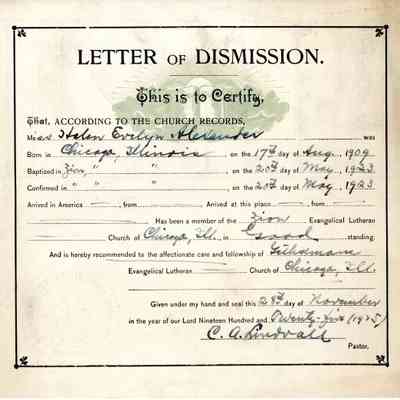 LETTER OF DISMISSION.
This is to Certify,
That, ACCORDING TO THE CHURCH RECORDS,
Miss Helen Evelyn Alexander was
Born in Chicago, Illinois, on the 17th day of Aug. 1909
Baptized in Zion, " " , on the 20th day of May, 1923
Confirmed in " " , on the 20th day of May, 1923
Arrived in America , from Arrived at this place , from
Has been a member of the Zion Evangelical Lutheran
Church of Chicago, Ill. in Good standing.
And is hereby recommended to the affectionate care and fellowship of
Evangelical Lutheran Church of Chicago, Ill.
Given under my hand and seal this day of November
in the year of our Lord Nineteen Hundred and Twenty-five (1925)
C. A. Lindvall
Pastor.